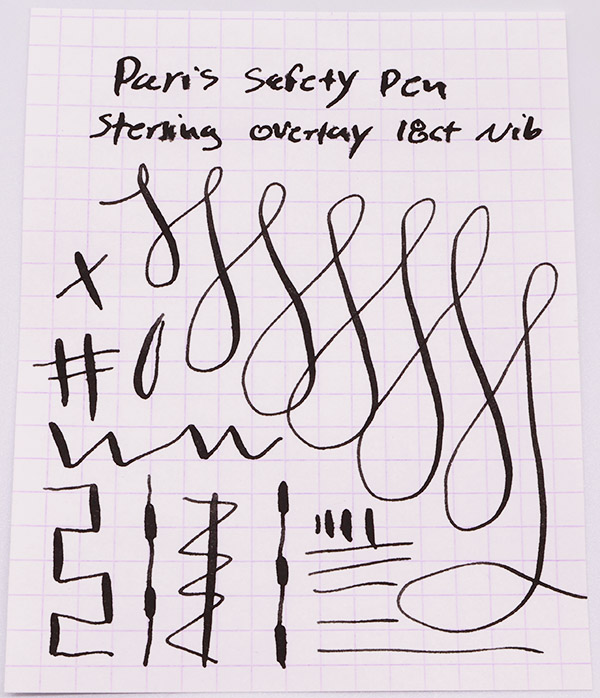 Paris Safety Pen
Sterling overlay 18ct Nib